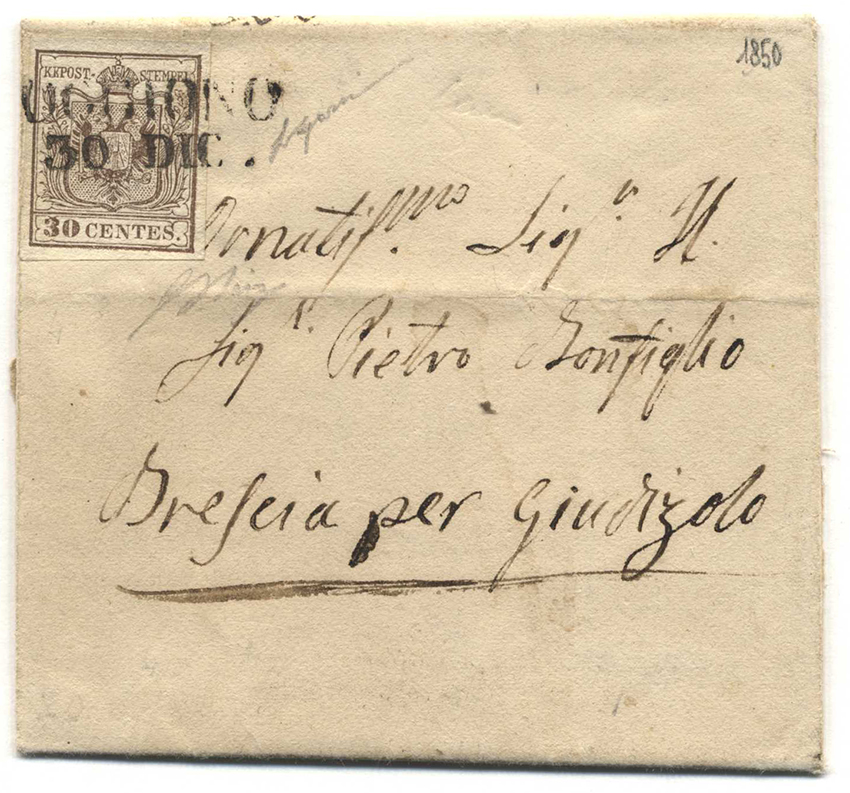 1850
KKPOST-STEMPEL
OGGIONO
30 DIC.
30 CENTES.
Sig.r H.
Sig.r Pietro Bonfiglio
Brescia per Giudizolo